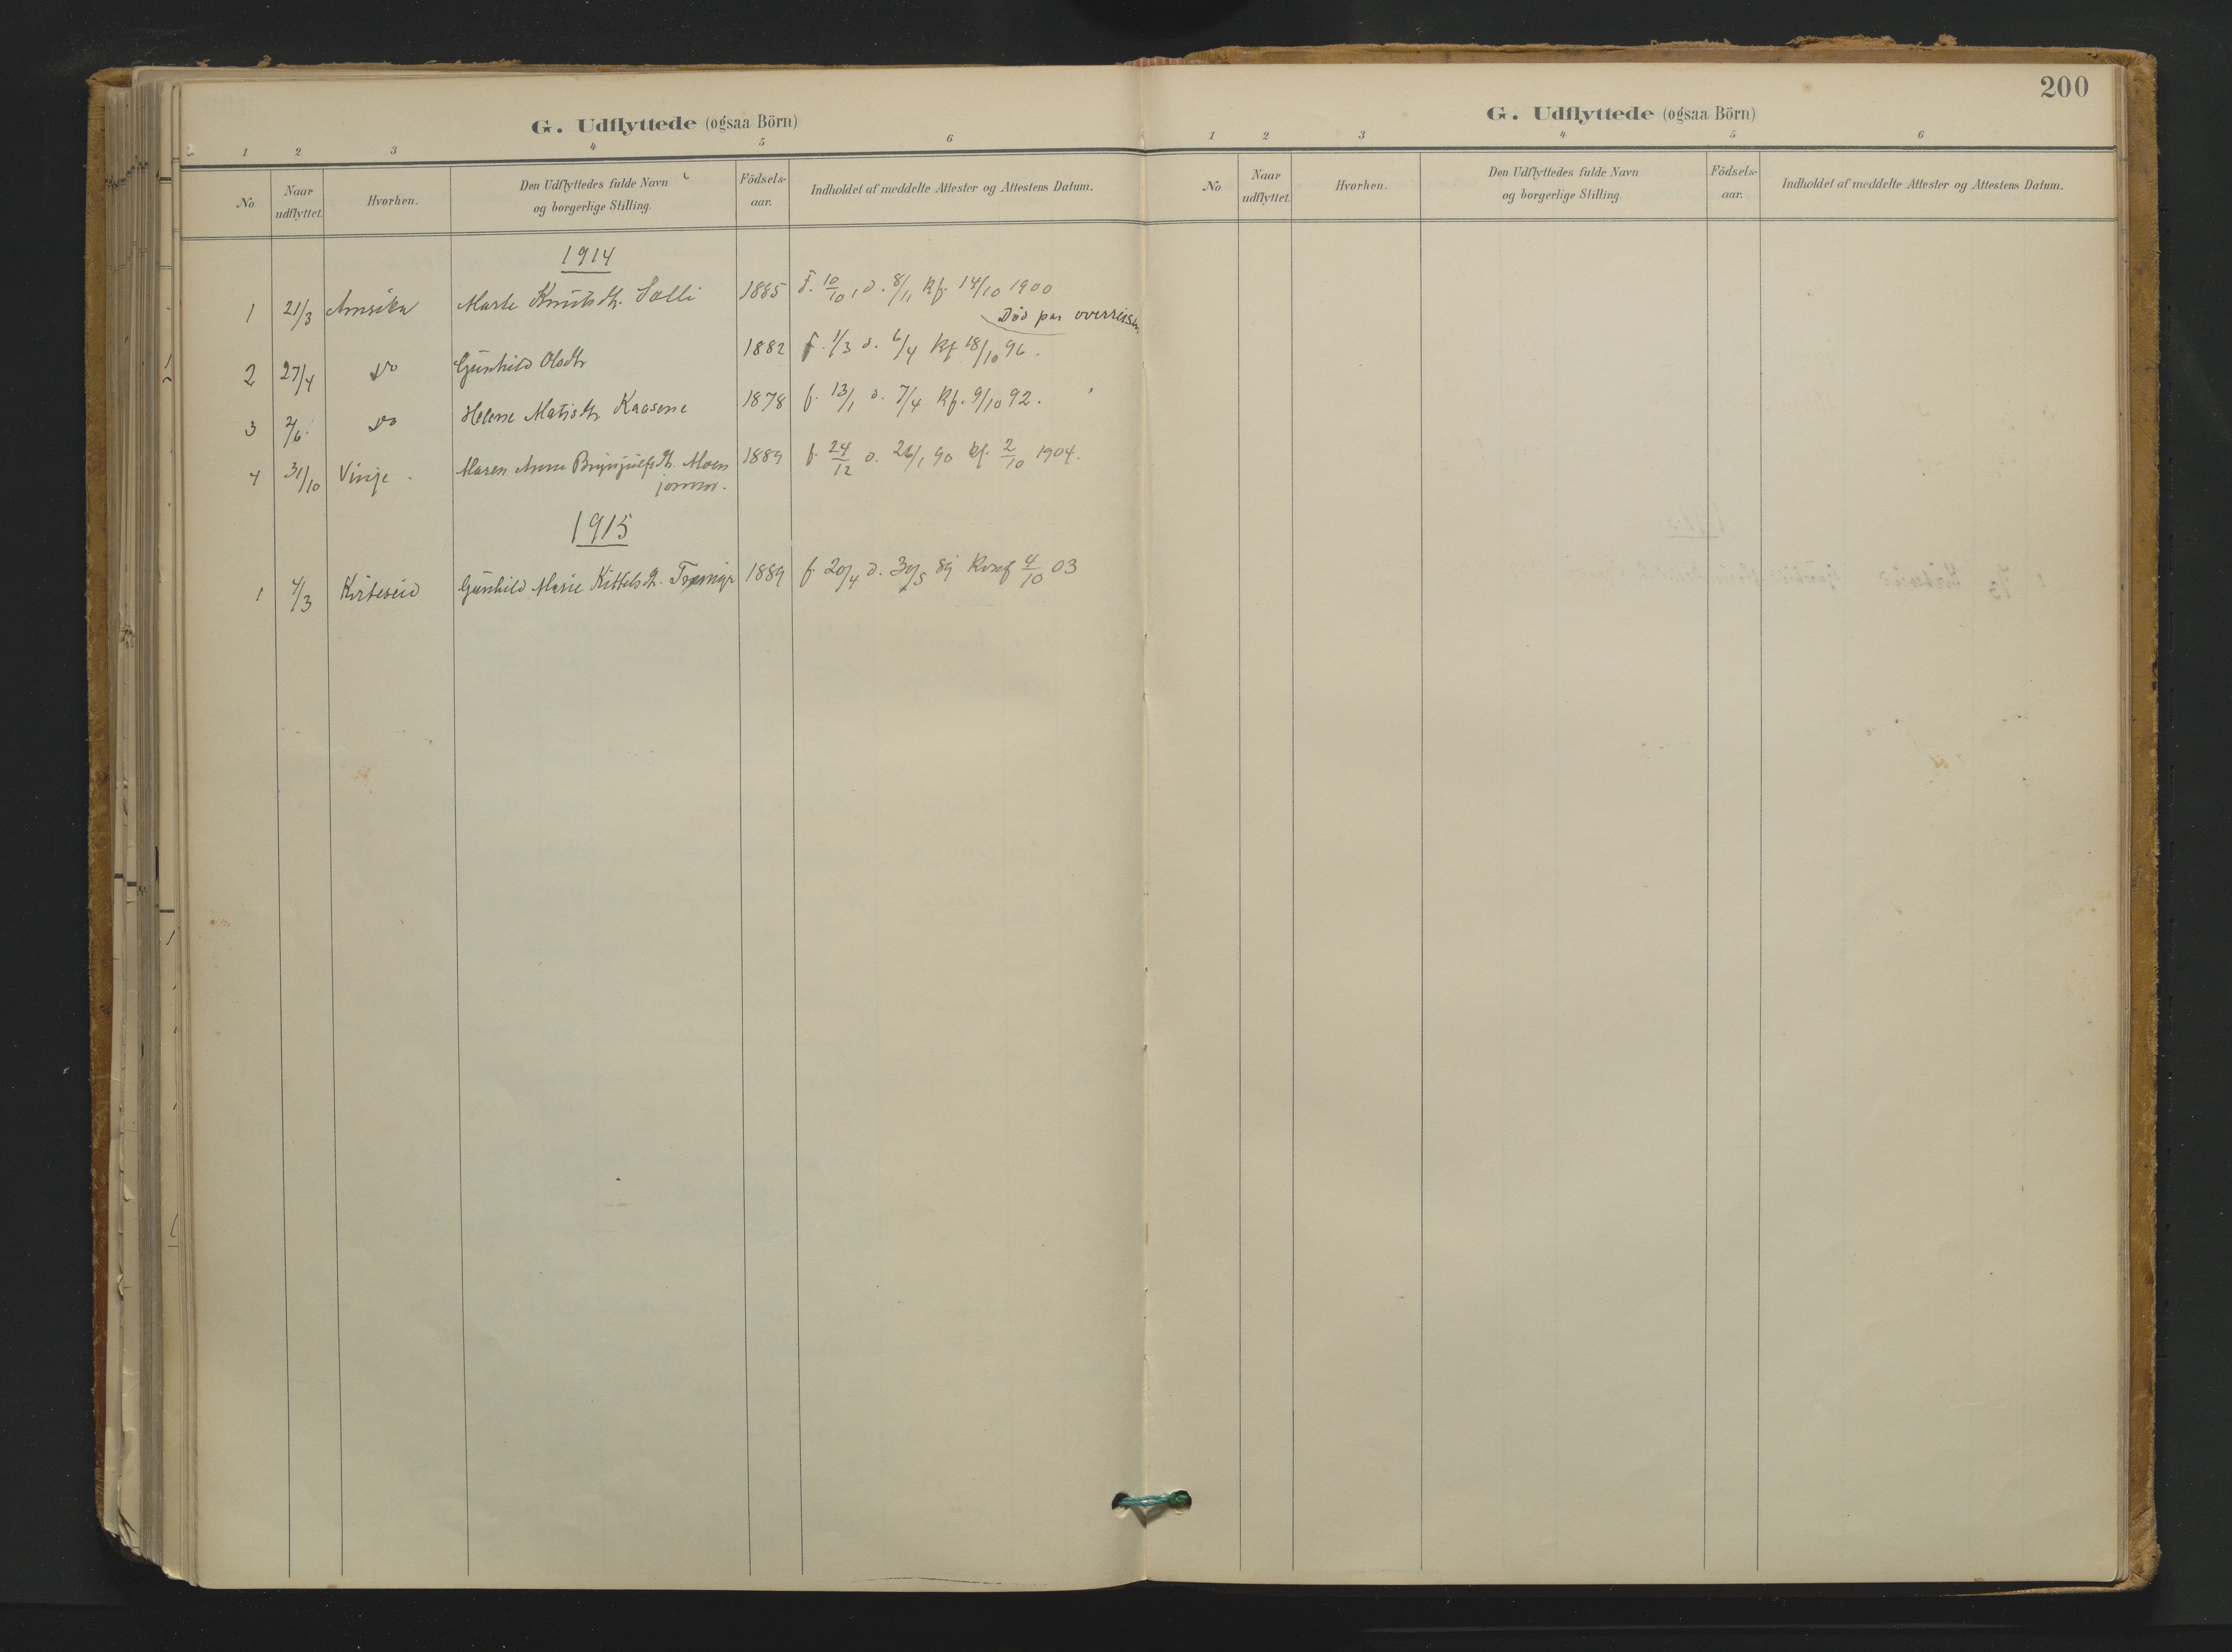 G. Udflyttede (ogsaa Börn)
1 2 3 4 5 6
No Naar udflyttet. Hvorhen. Den Udflyttedes fulde Navn og borgerlige Stilling. Födsels-aar. Indholdet af meddelte Attester og Attestens Datum.
1914
1 21/3 Amerika Marte Knutsdtr. Solli 1885 F. 10/10, d. 8/11 Kf. 14/10 1900
Död paa overreisen
2 27/4 do Gunhild Olsdtr 1882 f. 1/3 d. 6/4 Kf 18/10 96.
3 2/6 do Helene Matisdtr Kaasene 1878 f. 13/1 d. 7/4 Kf. 9/10 92.
4 31/10 Vinje Maren Anne Brynjulfsdtr. Moen 1889 f. 24/12 d. 26/1 90 kf. 2/10 1904.
jormor.
1915
1 4/3 Kviteseid Gunhild Marie Kittelsdtr. 1889 f 20/4 d. 30/5 89 Konf 4/10 03
200
G. Udflyttede (ogsaa Börn)
1 2 3 4 5 6
No Naar udflyttet. Hvorhen. Den Udflyttedes fulde Navn og borgerlige Stilling. Födsels-aar. Indholdet af meddelte Attester og Attestens Datum.